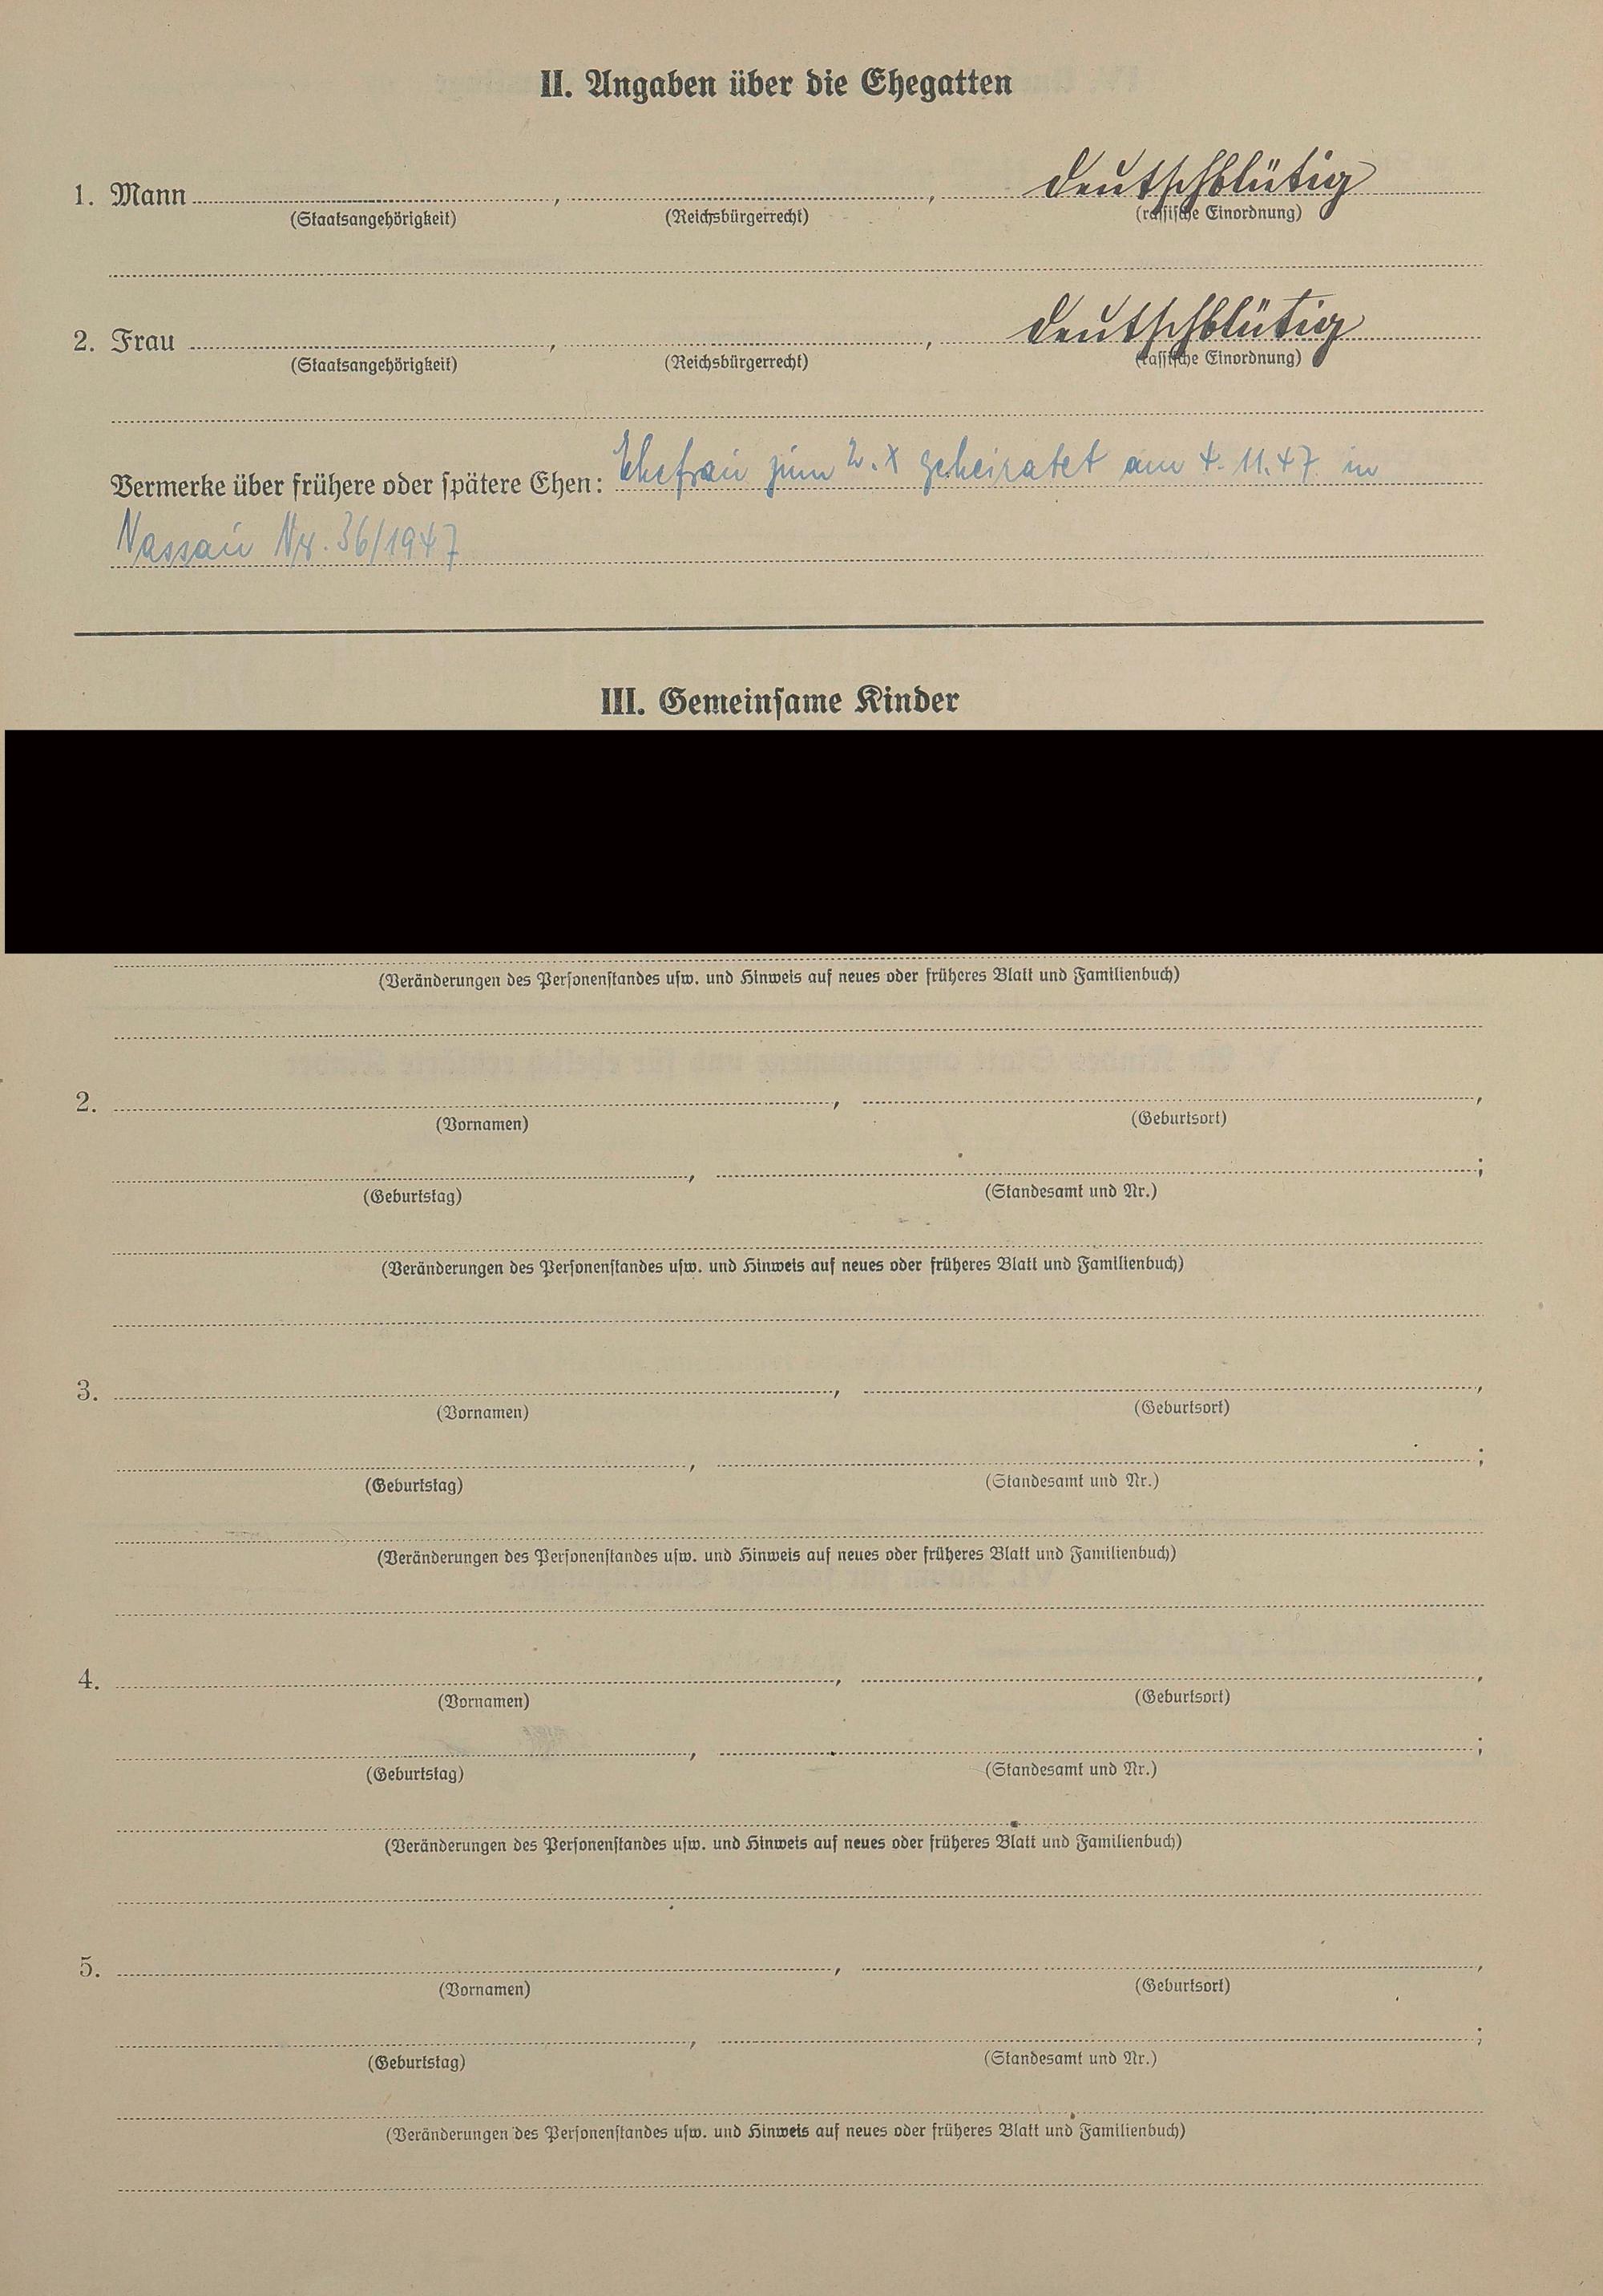 II. Angaben über die Ehegatten
1. Mann , , deutschblütig
(Staatsangehörigkeit) (Reichsbürgerrecht) (rassische Einordnung)
2. Frau , , deutschblütig
(Staatsangehörigkeit) (Reichsbürgerrecht) (rassische Einordnung)
Vermerke über frühere oder spätere Ehen: Ehefrau zum 2. X geheiratet am 4. 11. 47 in
Nassau Nr. 36/1947
III. Gemeinsame Kinder
(Veränderungen des Personenstandes usw. und Hinweis auf neues oder früheres Blatt und Familienbuch)
2. , ,
(Vornamen) (Geburtsort)
, ;
(Geburtstag) (Standesamt und Nr.)
(Veränderungen des Personenstandes usw. und Hinweis auf neues oder früheres Blatt und Familienbuch)
3. , ,
(Vornamen) (Geburtsort)
, ;
(Geburtstag) (Standesamt und Nr.)
(Veränderungen des Personenstandes usw. und Hinweis auf neues oder früheres Blatt und Familienbuch)
4. , ,
(Vornamen) (Geburtsort)
, ;
(Geburtstag) (Standesamt und Nr.)
(Veränderungen des Personenstandes usw. und Hinweis auf neues oder früheres Blatt und Familienbuch)
5. , ,
(Vornamen) (Geburtsort)
, ;
(Geburtstag) (Standesamt und Nr.)
(Veränderungen des Personenstandes usw. und Hinweis auf neues oder früheres Blatt und Familienbuch)